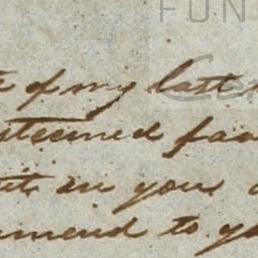 FUN
of my last
esteemed fav
in your
mend to yo